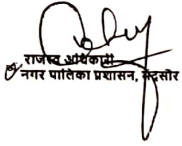 राजस्व अधिकारी
नगर पालिका प्रशासन, मंदसौर